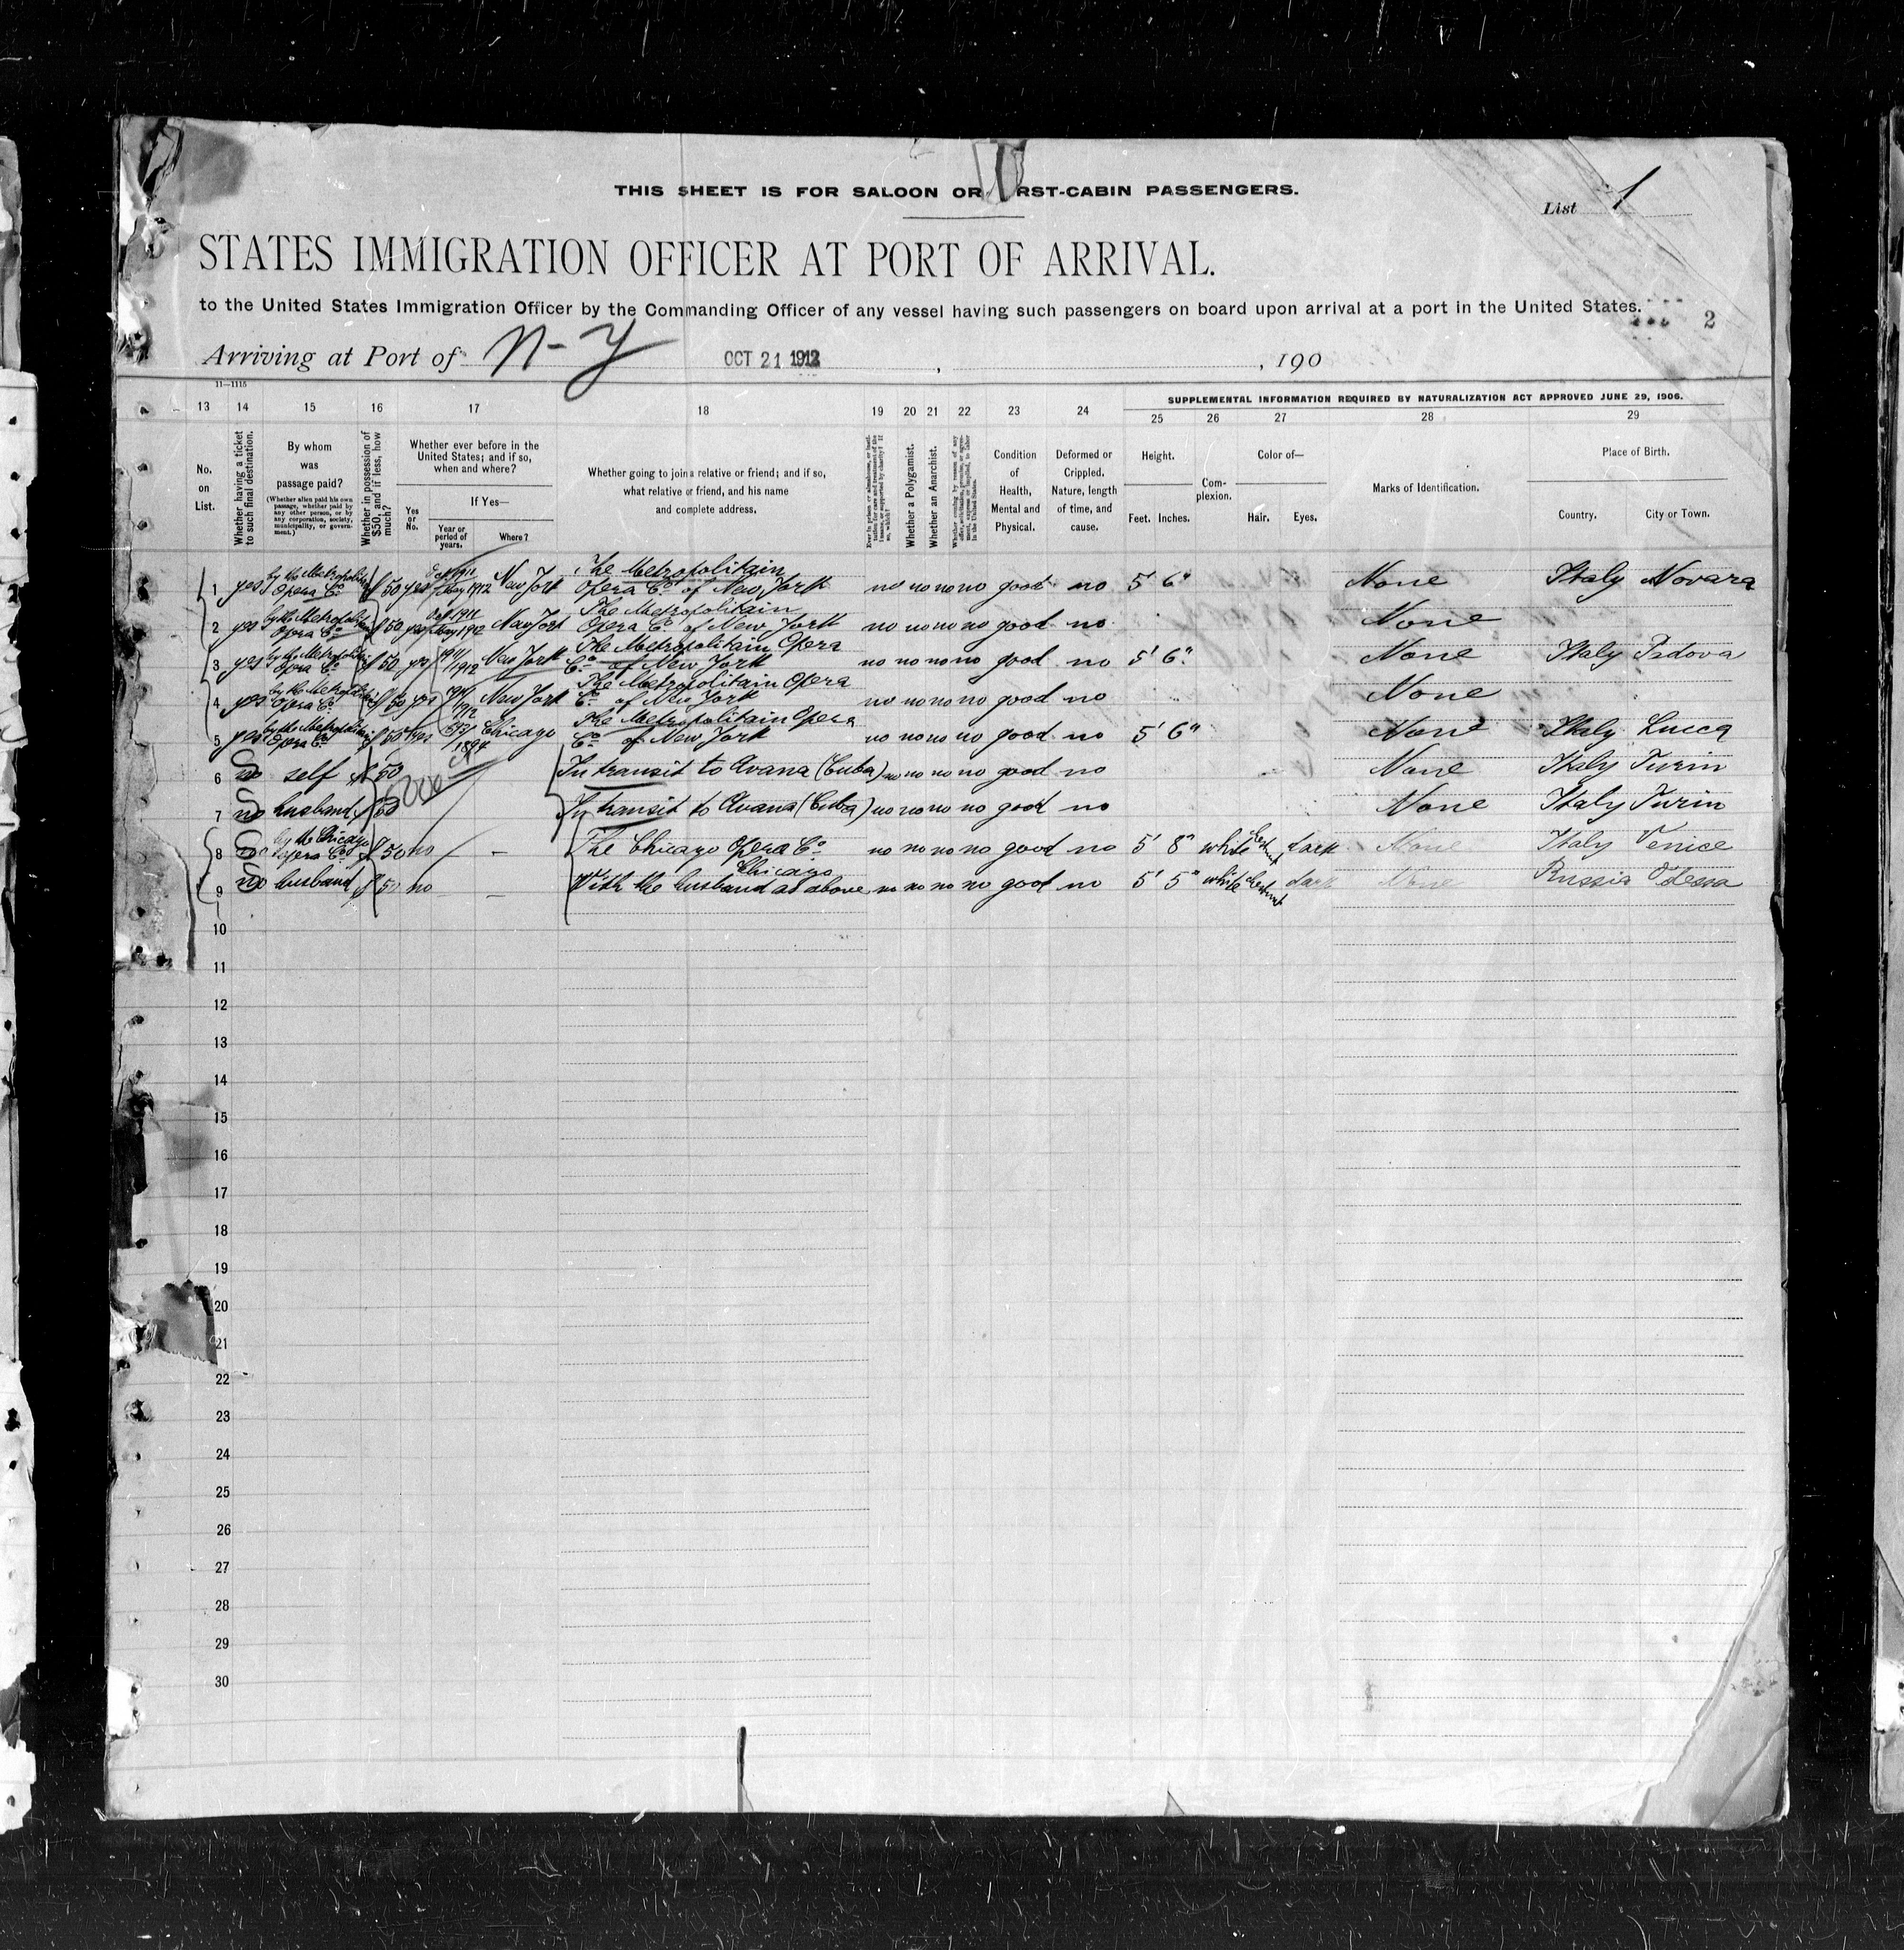 THIS SHEET IS FOR SALOON OR RST-CABIN PASSENGERS.
List 1
STATES IMMIGRATION OFFICER AT PORT OF ARRIVAL.
to the United States Immigration Officer by the Commanding Officer of any vessel having such passengers on board upon arrival at a port in the United States.
2
Arriving at Port of N-Y OCT 21 1912 , , 190
11—1115
SUPPLEMENTAL INFORMATION REQUIRED BY NATURALIZATION ACT APPROVED JUNE 29, 1906.
13 14 15 16 17 18 19 20 21 22 23 24 25 26 27 28 29
No. on List.
Whether having a ticket to such final destination.
By whom was passage paid?
(Whether alien paid his own passage, whether paid by any other person, or by any corporation, society, municipality, or government.)
Whether in possession of $50, and if less, how much?
Whether ever before in the United States; and if so, when and where?
Yes or No.
If Yes—
Year or period of years.
Where?
Whether going to join a relative or friend; and if so, what relative or friend, and his name and complete address.
Whether a Polygamist.
Whether an Anarchist.
Condition of Health, Mental and Physical.
Deformed or Crippled. Nature, length of time, and cause.
Height.
Feet. Inches.
Complexion.
Color of—
Hair. Eyes.
Marks of Identification.
Place of Birth.
Country. City or Town.
1 yes by the Metropolitan Opera Co $ 50 yes 1911 May 1912 New York The Metropolitan Opera Co of New York no no no no good no 5' 6" None Italy Novara
2 yes by the Metropolitan Opera Co $ 50 yes 1911 May 1912 New York The Metropolitan Opera Co of New York no no no no good no None
3 yes by the Metropolitan Opera Co $ 50 yes 1911/1912 New York The Metropolitan Opera Co of New York no no no no good no 5' 6" None Italy Padova
4 yes by the Metropolitan Opera Co $ 50 yes 1911/1912 New York The Metropolitan Opera Co of New York no no no no good no None
5 yes by the Metropolitan Opera Co $ 50 yes 1894 Chicago The Metropolitan Opera Co of New York no no no no good no 5' 6" None Italy Lucca
6 no self $ 50 In transit to Avana (Cuba) no no no no good no None Italy Turin
7 no husband $ 50 In transit to Avana (Cuba) no no no no good no None Italy Turin
8 no by the Chicago Opera Co $ 50 no — — The Chicago Opera Co Chicago no no no no good no 5' 8" white dark None Italy Venice
9 no husband $ 50 no — With the husband as above no no no no good no 5' 5" white dark None Russia Odessa
10
11
12
13
14
15
16
17
18
19
20
21
22
23
24
25
26
27
28
29
30